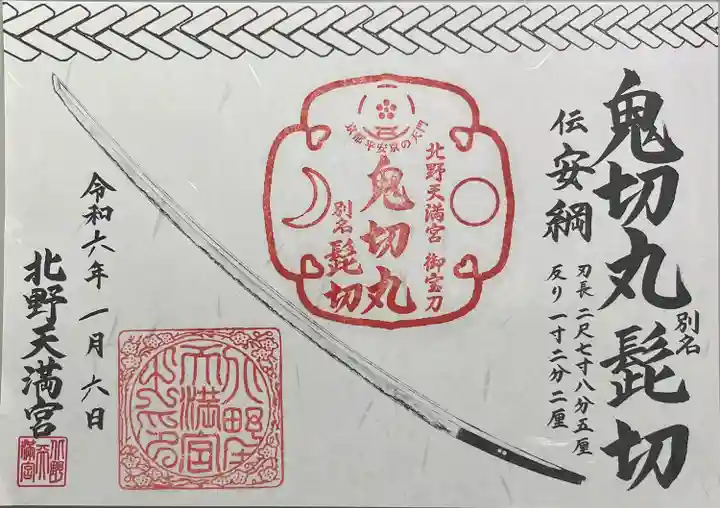 鬼切丸 別名 髭切
伝 安綱
刃長 二尺七寸八分五厘
反り 一寸二分二厘
京都平安京の天門
北野天満宮 御宝刀
鬼切丸
別名 髭切
令和六年 一月 六日
北野天満宮